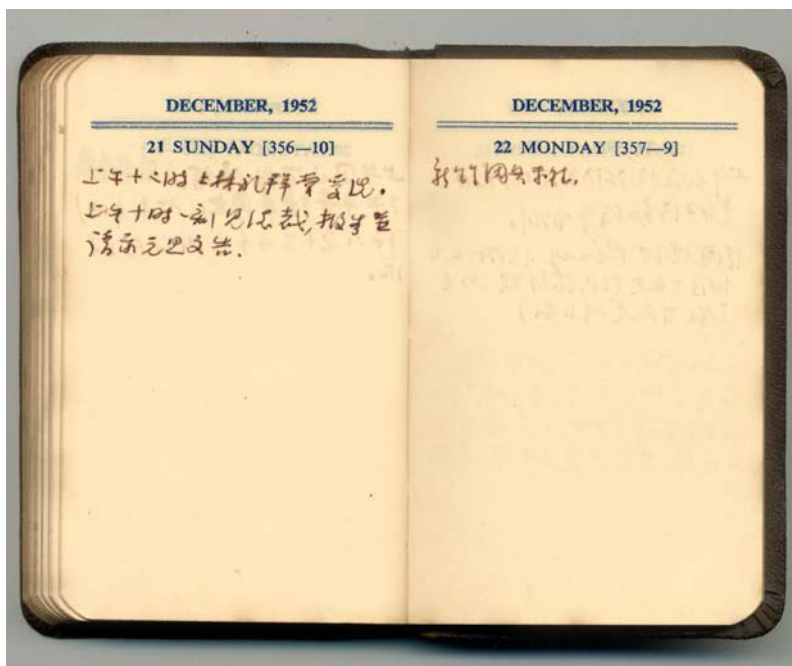 DECEMBER, 1952
21 SUNDAY [356—10]
上午十時士林礼拜堂受洗。
上午十時一刻見总裁,报告並
請示元旦文告.
DECEMBER, 1952
22 MONDAY [357—9]
新竹阅兵典礼.